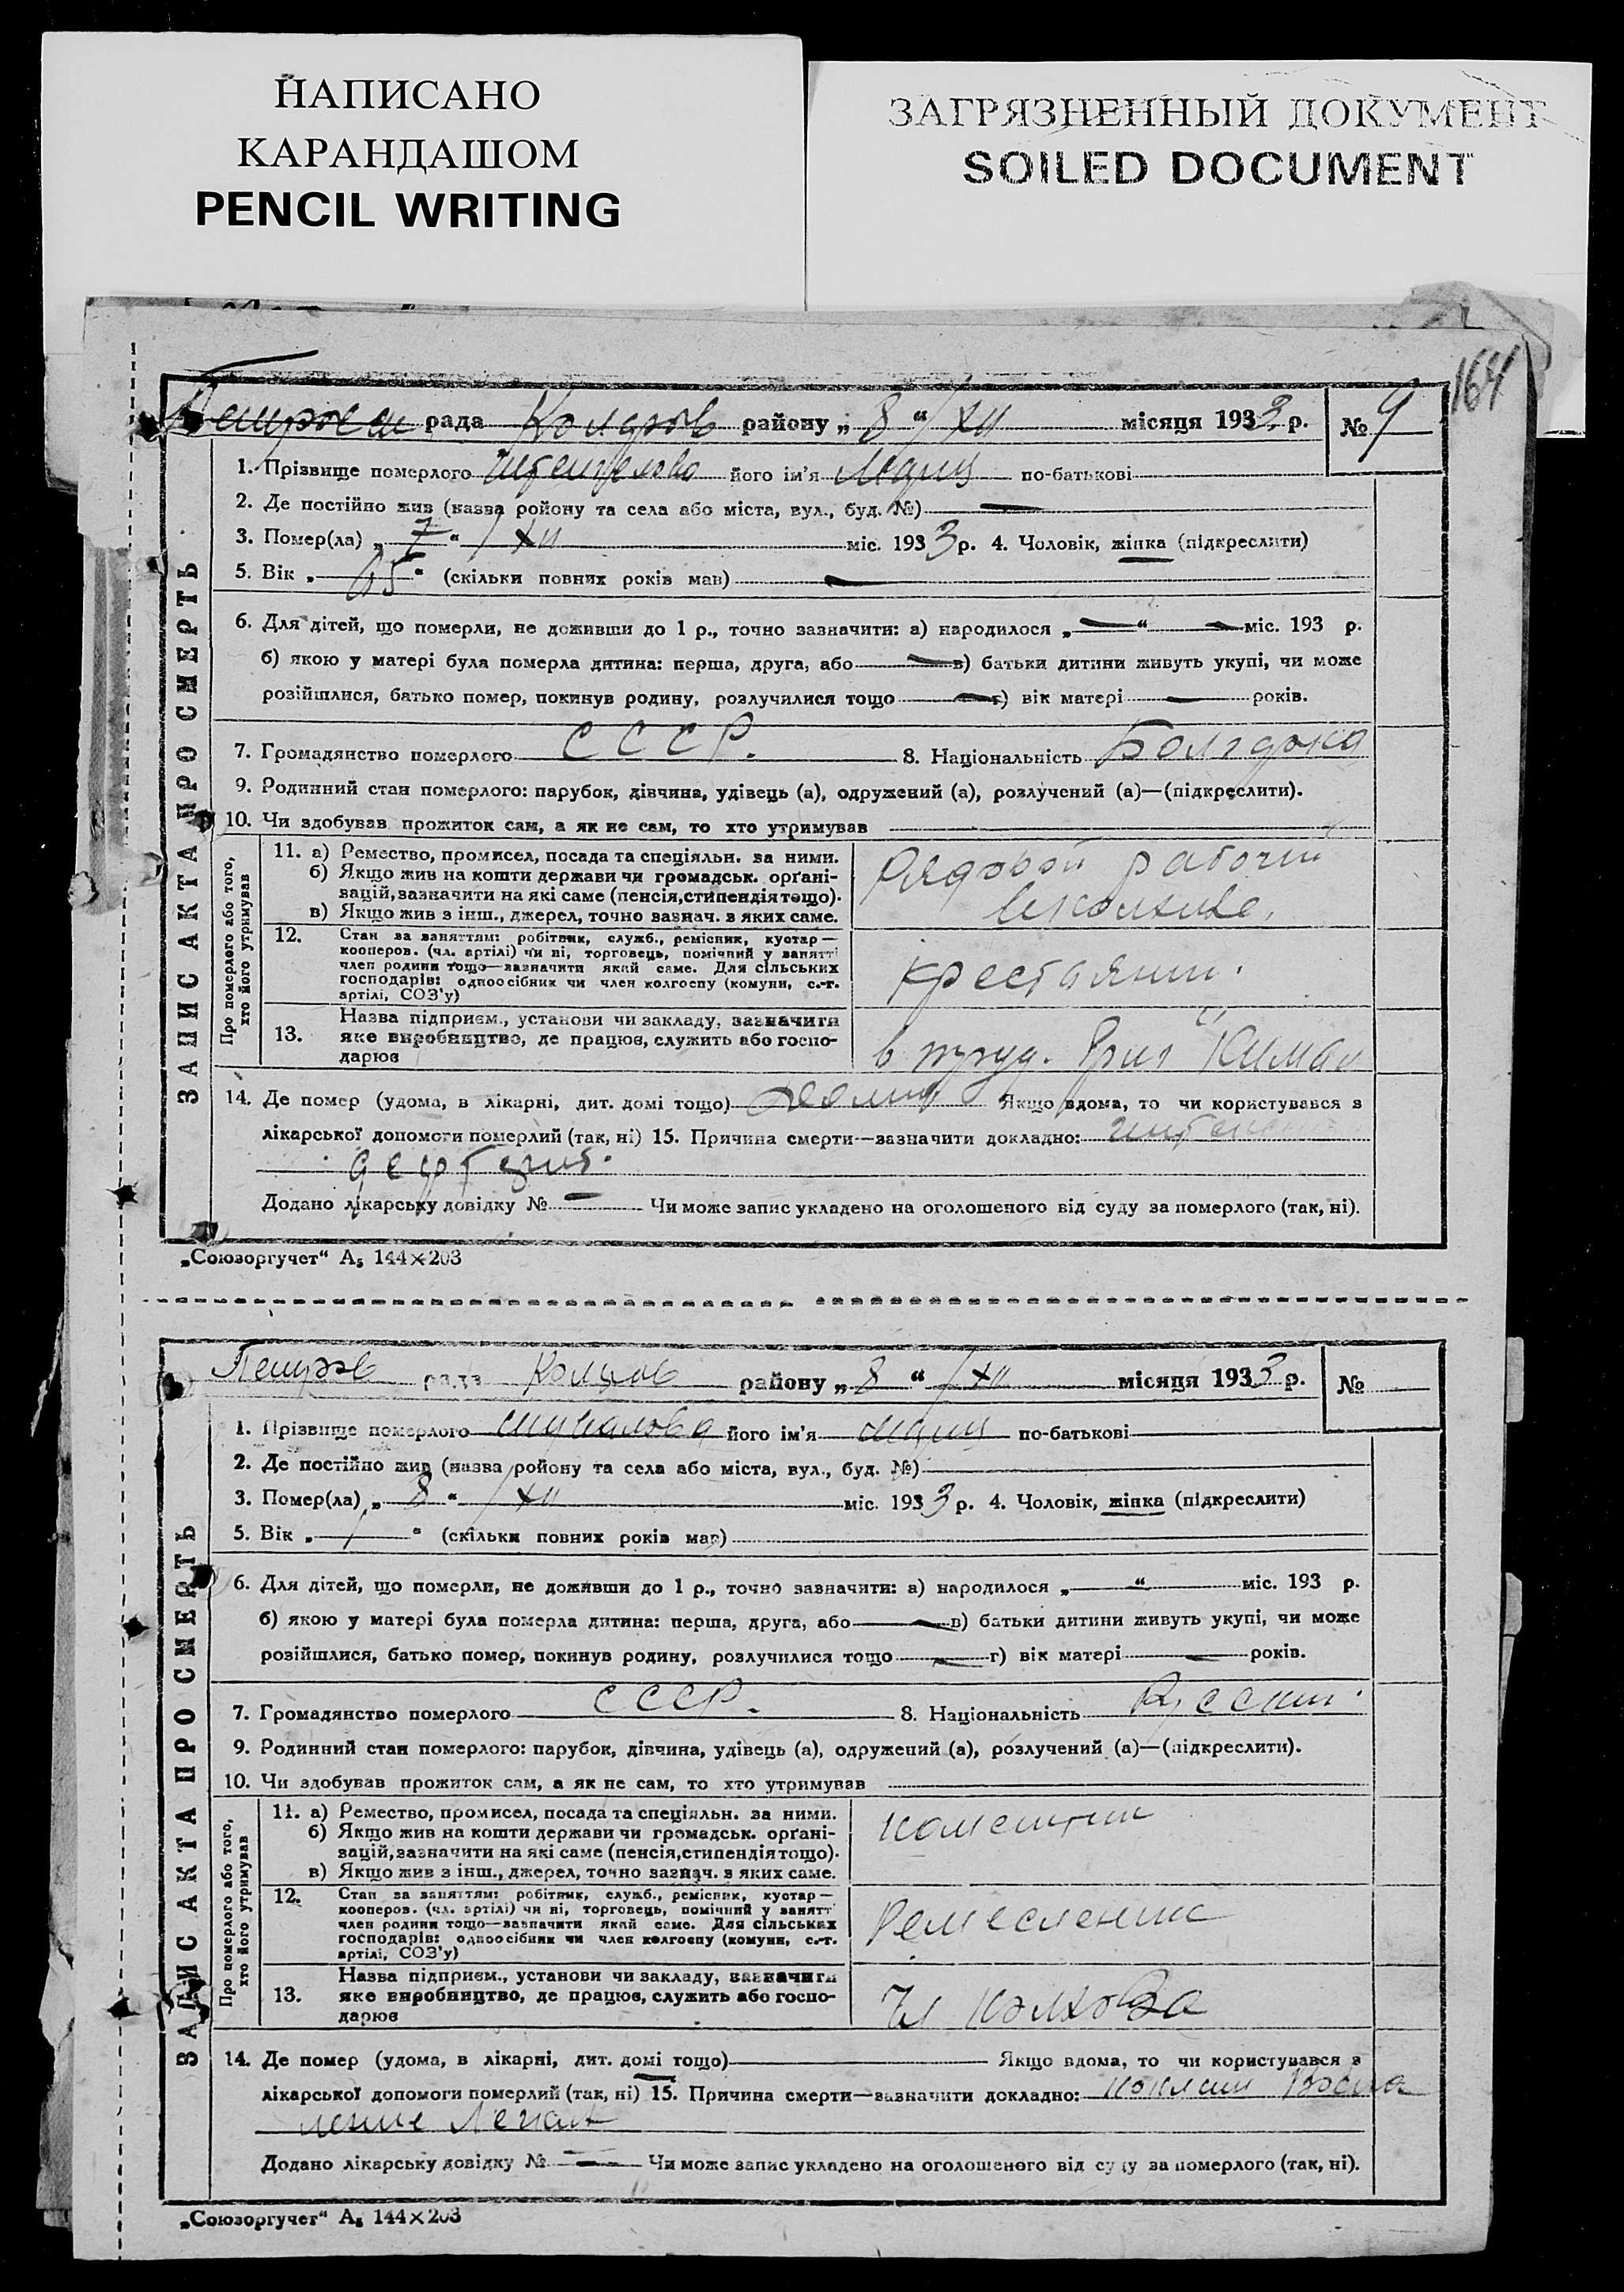 НАПИСАНО
КАРАНДАШОМ
PENCIL WRITING
ЗАГРЯЗНЕННЫЙ ДОКУМЕНТ
SOILED DOCUMENT
164
рада района „ 8 “ / XII місяця 1933 р. № 9
1. Прізвище померлого його ім'я по-батькові
2. Де постійно жив (назва ройону та села або міста, вул., буд. №) —
3. Помер(ла) „ 7 “ / XII міс. 1933 р. 4. Чоловік, жінка (підкреслити)
5. Вік „ 65 “ (скільки повних років мав) —
6. Для дітей, що померли, не доживши до 1 р., точно зазначити: а) народилося „ — “ — міс. 193 р.
б) якою у матері була померла дитина: перша, друга, або — в) батьки дитини живуть укупі, чи може
розійшлися, батько помер, покинув родину, розлучилися тощо — г) вік матері — років.
7. Громадянство померлого СССР. 8. Національність Болгарка
9. Родинний стан померлого: парубок, дівчина, удівець (а), одружений (а), розлучений (а)—(підкреслити).
10. Чи здобував прожиток сам, а як не сам, то хто утримував
ЗАПИС АКТА ПРО СМЕРТЬ
Про померлого або того, хто його утримував
11. а) Ремество, промисел, посада та спеціяльн. за ними.
б) Якщо жив на кошти держави чи громадськ. орґані-
зацій, зазначити на які саме (пенсія, стипендія тощо).
в) Якщо жив з інш., джерел, точно зазнач. з яких саме.
Рядовой рабочий
12. Стан за заняттям: робітник, служб., ремісник, кустар—
кооперов. (чл. артілі) чи ні, торговець, помічний у занятті
член родини тощо—зазначити який саме. Для сільських
господарів: одноосібник чи член колгоспу (комуни, с.-г.
артілі, СОЗ'у)
крестьянин.
13. Назва підприєм., установи чи закладу, зазначити
яке виробництво, де працює, служить або госпо-
дарює
14. Де помер (удома, в лікарні, дит. домі тощо) Якщо вдома, то чи користувався з
лікарської допомоги померлий (так, ні) 15. Причина смерти—зазначити докладно:
Додано лікарську довідку № — Чи може запис укладено на оголошеного від суду за померлого (так, ні).
„Союзоргучет“ А5 144×203
Петров рада района „ 8 “ / XII місяця 1933 р. №
1. Прізвище померлого його ім'я по-батькові
2. Де постійно жив (назва ройону та села або міста, вул., буд. №)
3. Помер(ла) „ 8 “ / XII міс. 1933 р. 4. Чоловік, жінка (підкреслити)
5. Вік „ 1 “ (скільки повних років мав)
6. Для дітей, що померли, не доживши до 1 р., точно зазначити: а) народилося „ “ міс. 193 р.
б) якою у матері була померла дитина: перша, друга, або — в) батьки дитини живуть укупі, чи може
розійшлися, батько помер, покинув родину, розлучилися тощо — г) вік матері — років.
7. Громадянство померлого СССР. 8. Національність Русский.
9. Родинний стан померлого: парубок, дівчина, удівець (а), одружений (а), розлучений (а)—(підкреслити).
10. Чи здобував прожиток сам, а як не сам, то хто утримував
ЗАПИС АКТА ПРО СМЕРТЬ
Про померлого або того, хто його утримував
11. а) Ремество, промисел, посада та спеціяльн. за ними.
б) Якщо жив на кошти держави чи громадськ. орґані-
зацій, зазначити на які саме (пенсія, стипендія тощо).
в) Якщо жив з інш., джерел, точно зазнач. з яких саме.
12. Стан за заняттям: робітник, служб., ремісник, кустар—
кооперов. (чл. артілі) чи ні, торговець, помічний у занятті
член родини тощо—зазначити який саме. Для сільських
господарів: одноосібник чи член колгоспу (комуни, с.-г.
артілі, СОЗ'у)
Ремесленник
13. Назва підприєм., установи чи закладу, зазначити
яке виробництво, де працює, служить або госпо-
дарює
Чл колхоза
14. Де помер (удома, в лікарні, дит. домі тощо) Якщо вдома, то чи користувався з
лікарської допомоги померлий (так, ні) 15. Причина смерти—зазначити докладно: Воспа
ление Легких
Додано лікарську довідку № — Чи може запис укладено на оголошеного від суду за померлого (так, ні).
„Союзоргучет“ А5 144×203